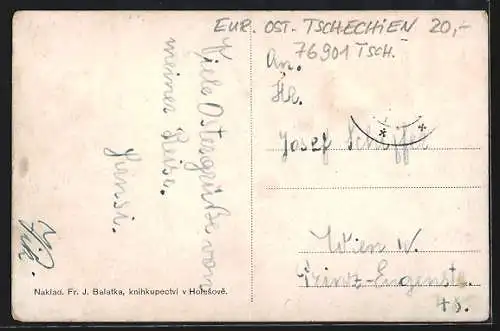 EUR. OST. TSCHECHIEN 20,-
76901 TSCH.
Viele Ostergrüße von
meiner Reise.
Hansi.
An.
Josef Schöffer
Wien IV.
Prinz-Eugenstr.
Naklad. Fr. J. Balatka, knihkupectví v Holešově.